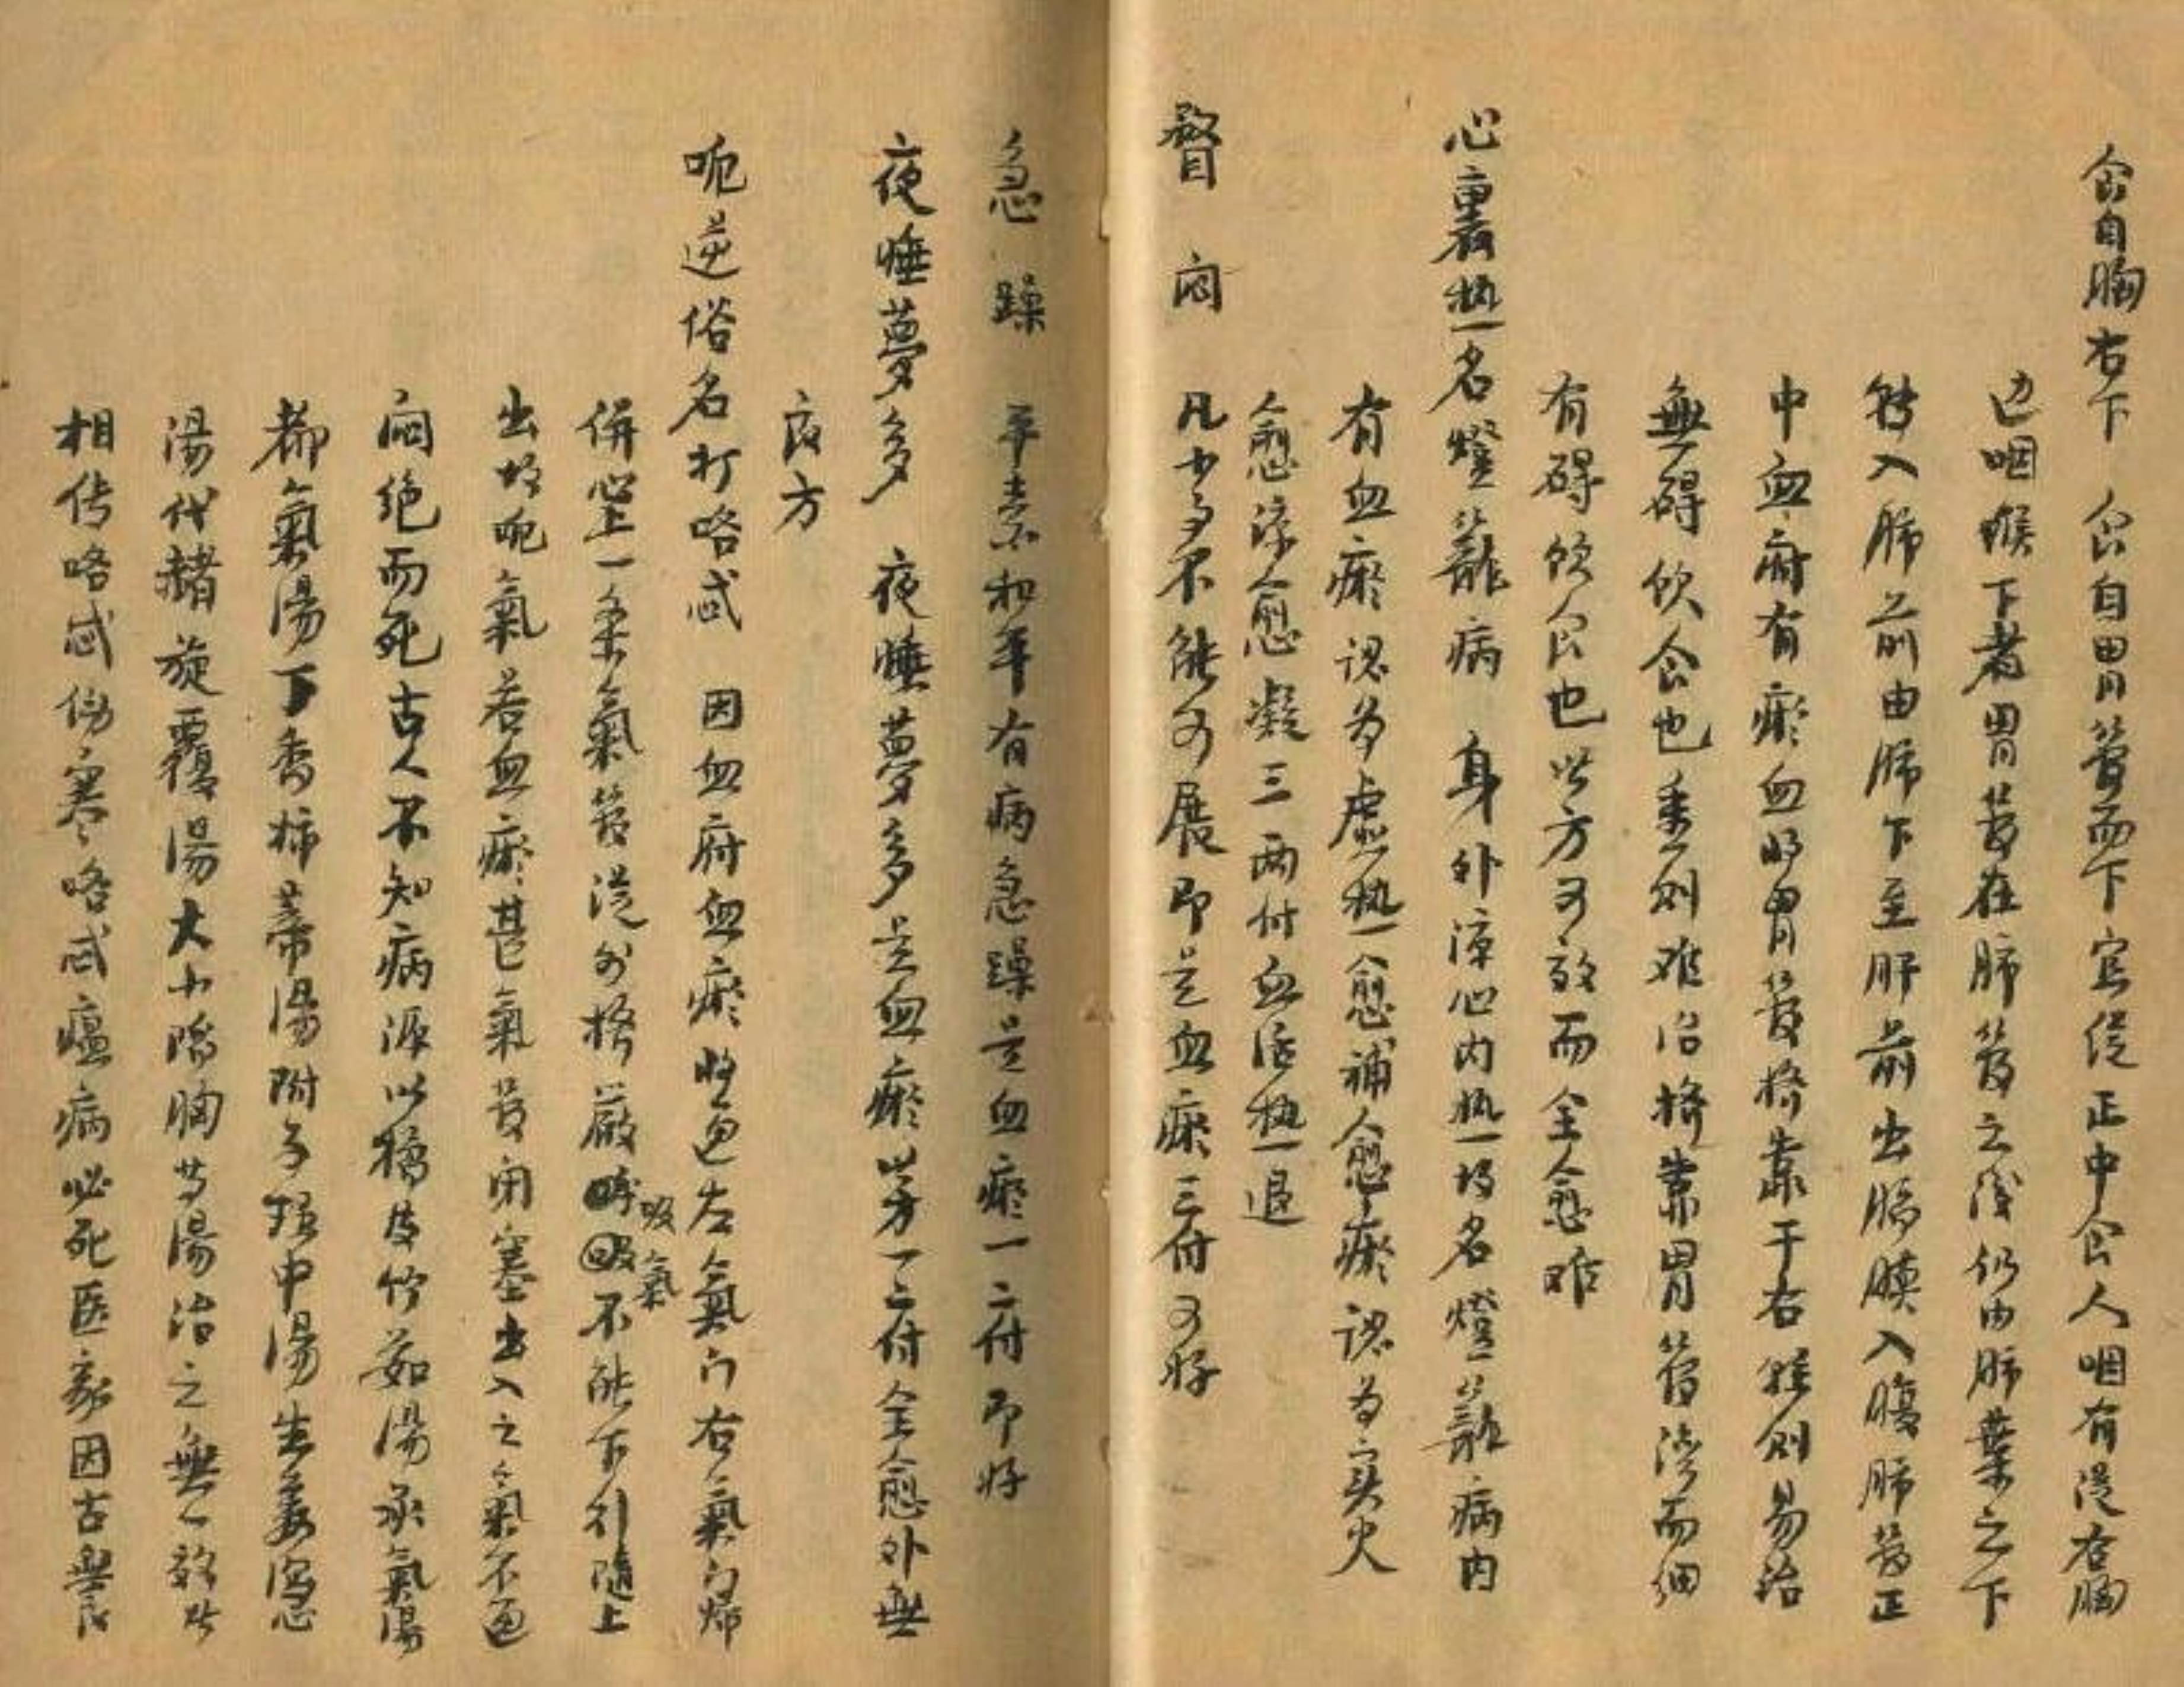 食自胸右下 食自胃管而下宜從正中食人咽有從右胸
边咽喉下者胃管在肺管之後仍由肺葉之下
转入肺前由肺下至肝前出膈膜入腹肺管正
中血府有瘀血将胃管挤靠于右轻则易治
無碍饮食也重则难治挤靠胃管湾而细
有碍饮食也此方可效而全愈难
心裏热一名燈籠病 身外凉心内热故名燈籠病内
有血瘀認为虚热愈補愈瘀認为实火
愈凉愈凝三两付血活热退
瞀闷 凡少事不能可展即是血瘀三付可好
急躁 平素和平有病急躁是血瘀一二付即好
夜睡夢多 夜睡夢多是血瘀此方一二付全愈外無
良方
呃逆俗名打咯忒 因血府血瘀将通左氣门右氣门归
併心上一条氣管從外挤嚴吸氣不能下行随上
出故呃氣若血瘀甚氣管闭塞出入之氣不通
闷绝而死古人不知病源以橘皮竹茹湯承氣湯
都氣湯丁香柿蒂湯附子理中湯生姜瀉心
湯代赭旋覆湯大小陷胸等湯治之無一効者
相传咯忒伤寒咯忒瘟病必死医家因古無良